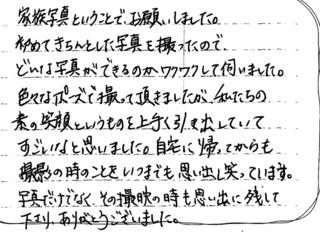 家族写真ということでお願いしました。
初めてきちんとした写真を撮ったので、
どんな写真ができるのかワクワクして伺いました。
色々なポーズで撮って頂きましたが、私たちの
素の笑顔というものを上手く引き出していて
すごいなと思いました。自宅に帰ってからも
撮影の時のことをいつまでも思い出し笑っています。
写真だけでなく、その撮映の時も思い出に残して
下さり、ありがとうございました。